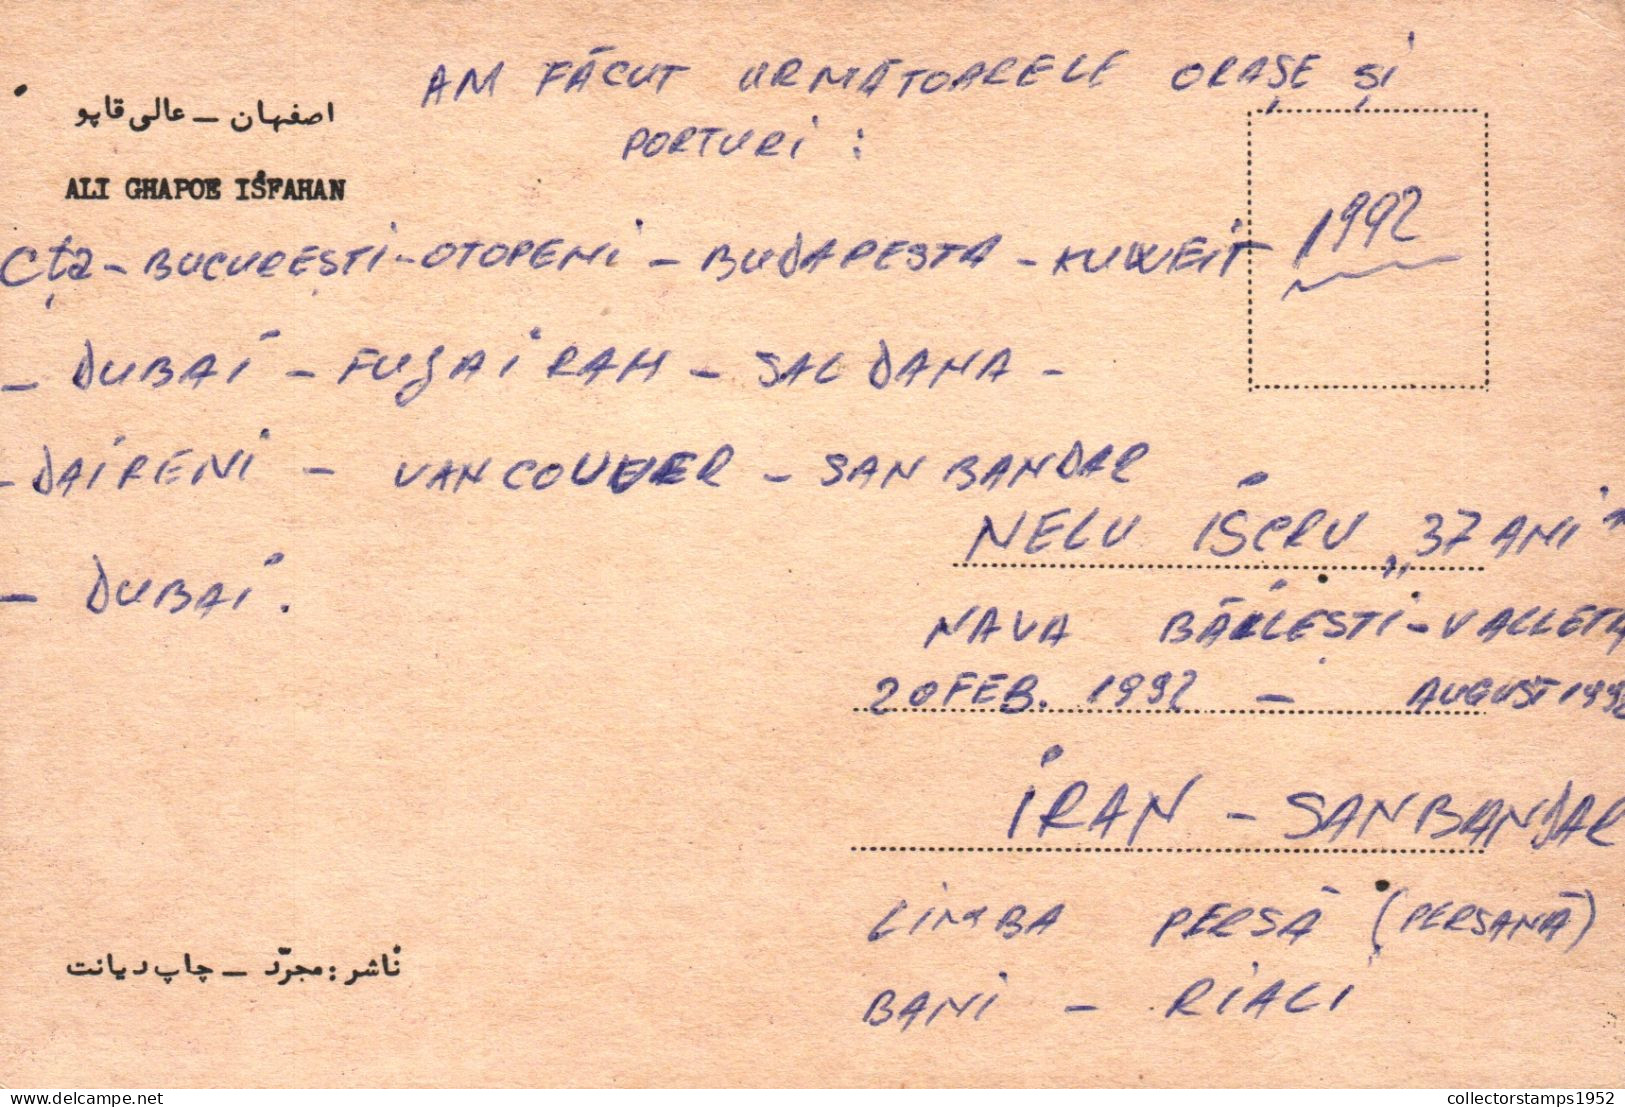 AM FĂCUT URMĂTOARELE ORAȘE ȘI
PORTURI :
اصفهان – عالی قاپو
ALI GHAPOE ISFAHAN
1992
Cța – BUCUREȘTI – OTOPENI – BUDAPESTA – KUWEIT
– DUBAI – FUJAIRAH – SALDANA –
– DAIRENI – VANCOUVER – SAN BANDAR
– DUBAI.
NELU ISCRU „37 ANI”
NAVA BĂILEȘTI – VALLETA
20 FEB. 1992 – AUGUST 1992
IRAN – SANBANDAR
LIMBA PERSĂ (PERSANĂ)
BANI – RIALI
ناشر : مجرّد – چاپ دیانت
collectorstamps1952